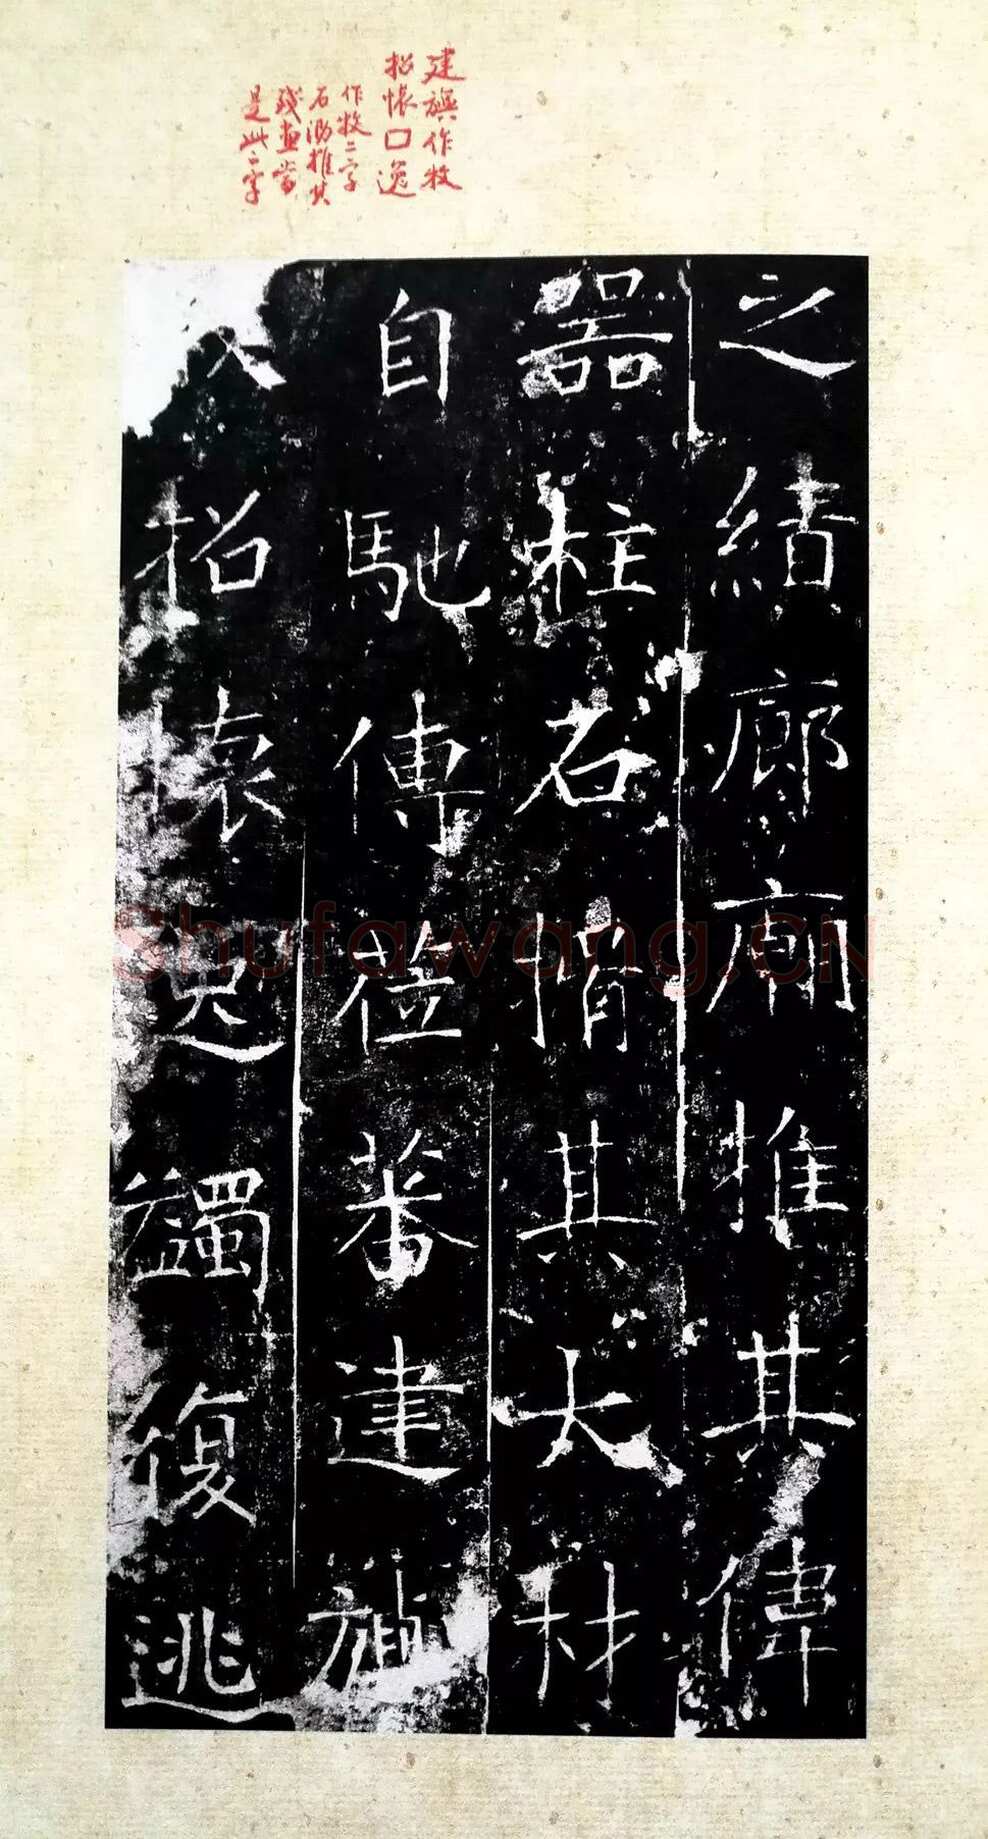 建旟作牧
招懷口逸
作牧二字
石泐推其
残畫當
是此二字
之緒廊廟推其偉
器柱石惜其大材
自馳傳莅蕃建
招懷逸蠲復逃
Shufawang.CN